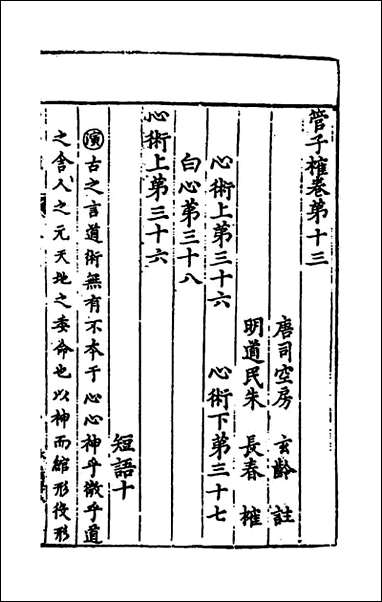 管子榷卷第十三
唐司空房　玄齡　註
明道民朱　長春　榷
心術上第三十六　心術下第三十七
白心第三十八
心術上第三十六
短語十
演　古之言道術無有不本于心心神乎微乎道
之舍人之元天地之委命也以神而館形役形